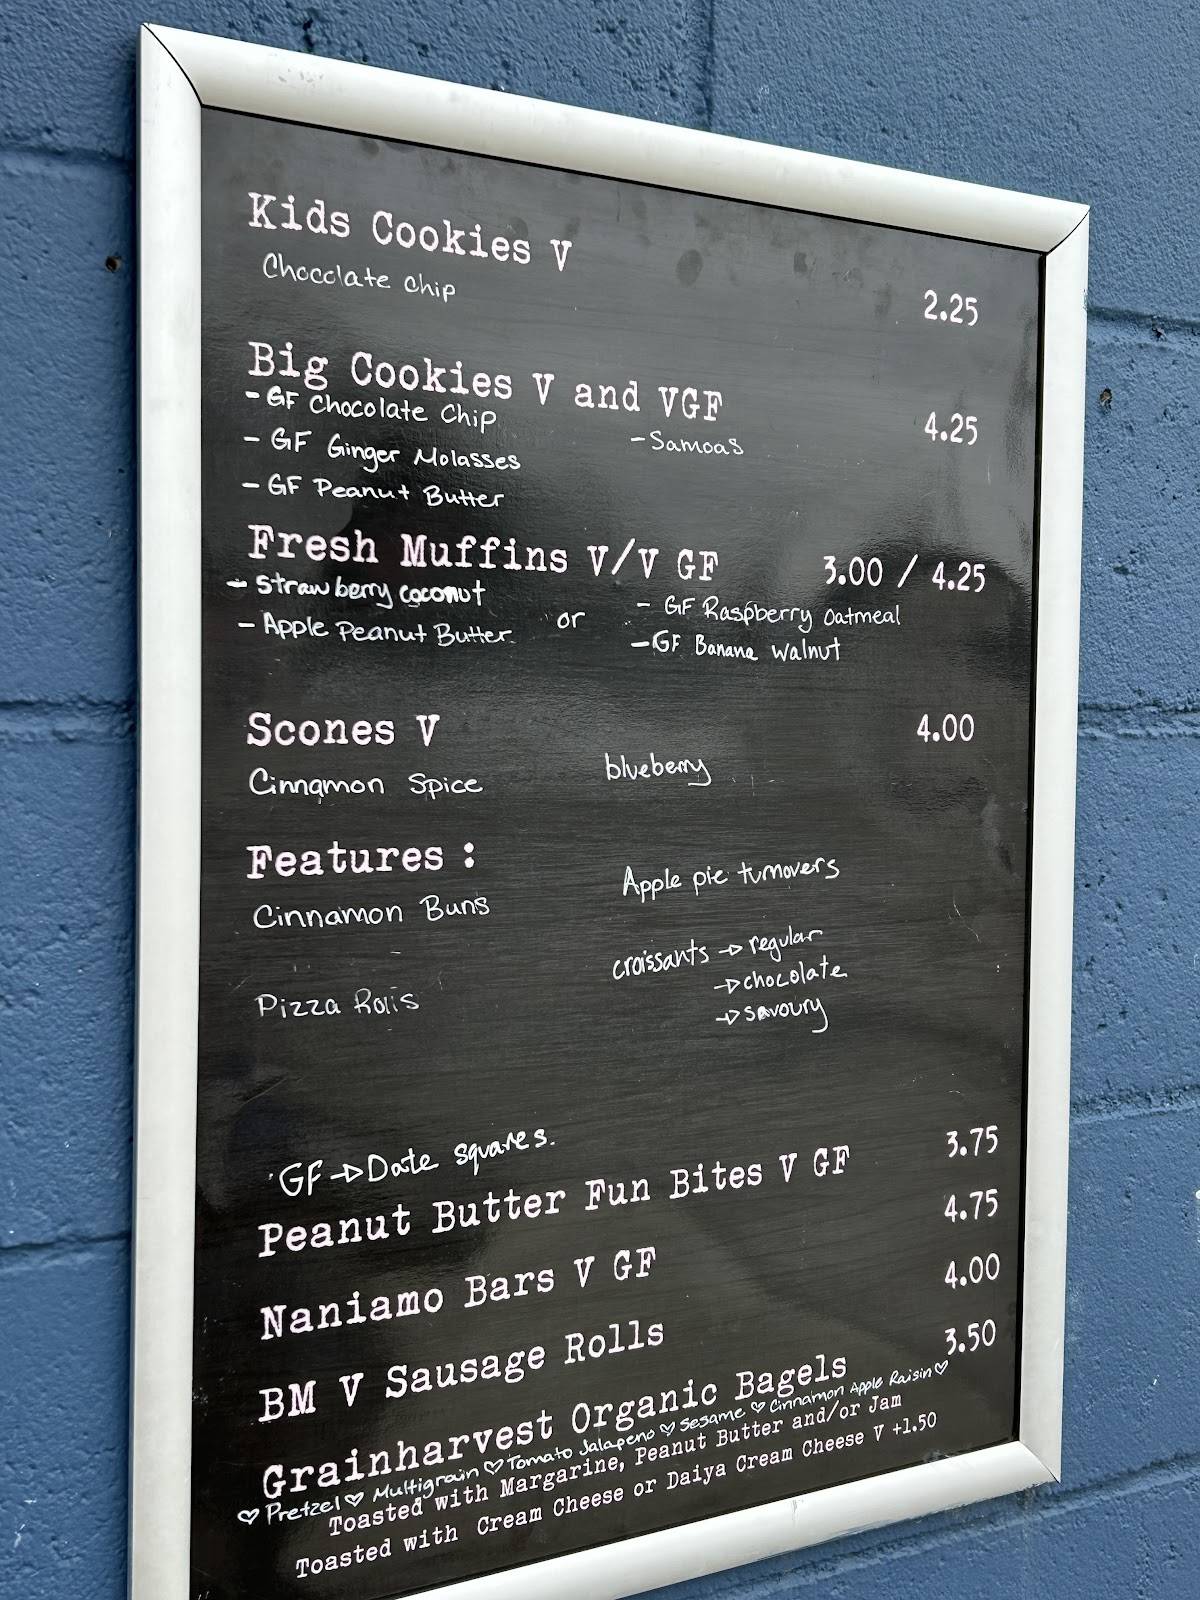 Kids Cookies V
Chocolate Chip
2.25
Big Cookies V and VGF
4.25
- GF Chocolate Chip
- Samoas
- GF Ginger Molasses
- GF Peanut Butter
Fresh Muffins V/V GF 3.00 / 4.25
- Strawberry coconut
- GF Raspberry Oatmeal
or
- Apple Peanut Butter
- GF Banana walnut
Scones V 4.00
Cinnamon Spice
blueberry
Features :
Apple pie turnovers
Cinnamon Buns
croissants → regular
→ chocolate
Pizza Rolls
→ savoury
GF → Date squares.
Peanut Butter Fun Bites V GF 3.75
Naniamo Bars V GF 4.75
BM V Sausage Rolls 4.00
Grainharvest Organic Bagels 3.50
♡ Pretzel ♡ Multigrain ♡ Tomato Jalapeno ♡ Sesame ♡ Cinnamon Apple Raisin ♡
Toasted with Margarine, Peanut Butter and/or Jam
Toasted with Cream Cheese or Daiya Cream Cheese V +1.50